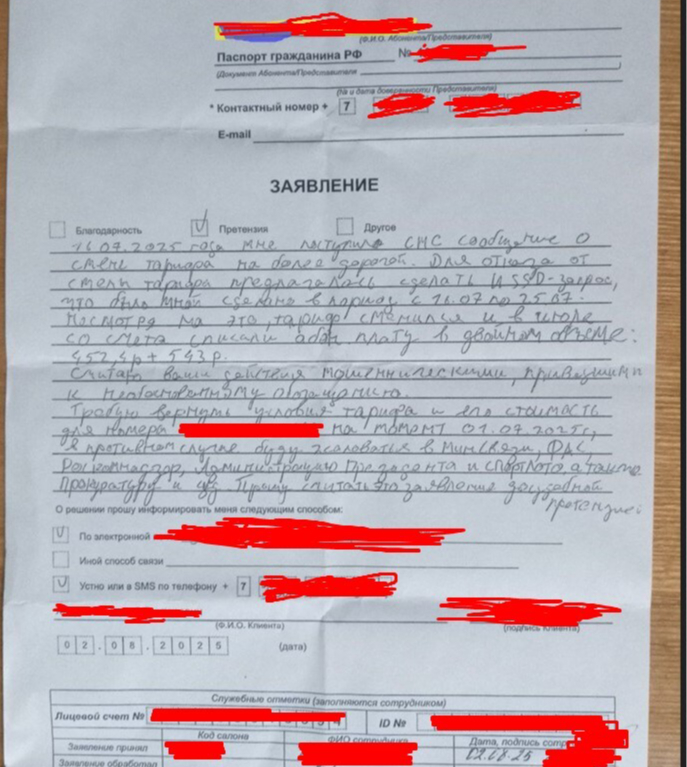 (Ф.И.О. Абонента/Представителя)
Паспорт гражданина РФ №
(Документ Абонента/Представителя
(№ и дата доверенности Представителя)
* Контактный номер + 7
E-mail
ЗАЯВЛЕНИЕ
Благодарность V Претензия Другое
16.07.2025 года мне поступило СМС сообщение о
смене тарифа на более дорогой. Для отказа от
смены тарифа предлагалось сделать USSD-запрос,
что было мной сделано в период с 16.07 по 25.07.
Несмотря на это, тариф сменился и в июле
со счета списали абон плату в двойном объеме:
452,4р + 543 р.
Считаю ваши действия мошенническими, приведшими
к необоснованному обогащению.
Требую вернуть условия тарифа и его стоимость
для номера на момент 01.07.2025г,
в противном случае буду жаловаться в Минсвязи, ФАС
Роскомнадзор, Администрацию Президента и спортлото, а также
Прокуратуру и цб. Прошу считать это заявление досудебной
претензией.
О решении прошу информировать меня следующим способом:
V По электронной
Иной способ связи
V Устно или в SMS по телефону + 7
(Ф.И.О. Клиента) (подпись Клиента)
02.08.2025 (дата)
Служебные отметки (заполняются сотрудником)
Лицевой счет № ID №
Код салона ФИО сотрудника Дата, подпись
Заявление принял 02.08.25
Заявление обработал